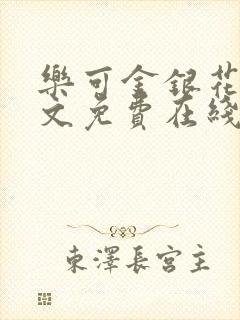 樂可金銀花
文免費在綫
東澤長宮主